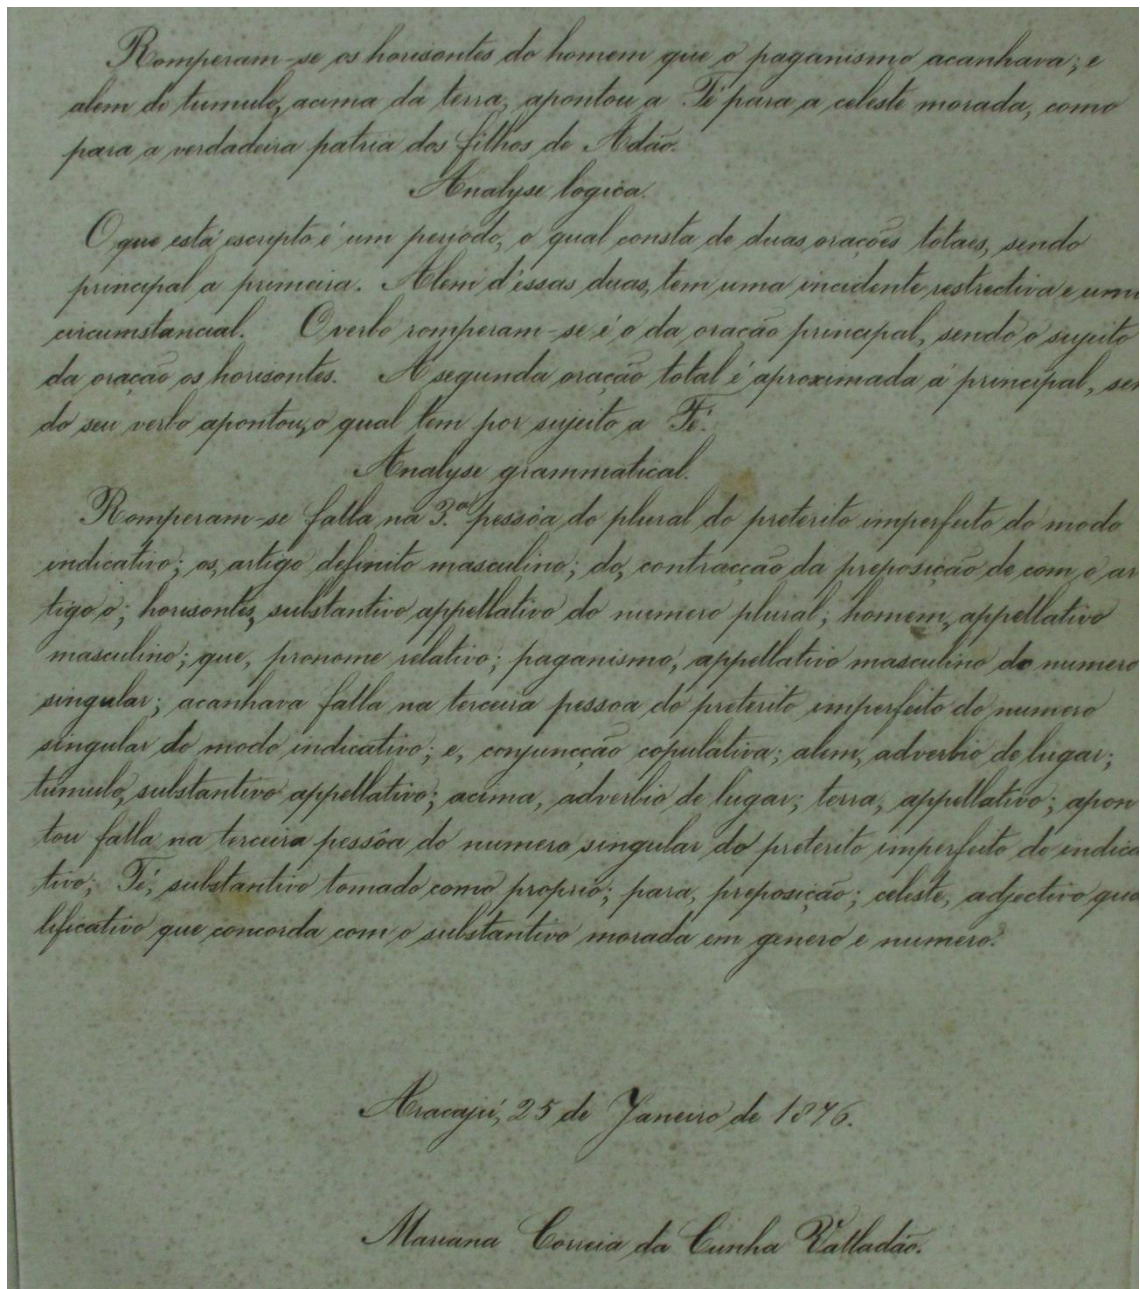 Romperam-se os horisontes do homem que o paganismo acanhava; e
alem do tumulo, acima da terra, apontou a Fé para a celeste morada, como
para a verdadeira patria dos filhos de Adão.
Analyse logica.
O que está escripto é um periodo, o qual consta de duas orações totaes, sendo
principal a primeira. Alem d'essas duas, tem uma incidente restrectiva e uma
circumstancial. O verbo romperam-se é o da oração principal, sendo o sujeito
da oração os horisontes. A segunda oração total é aproximada á principal, sen
do seu verbo apontou, o qual tem por sujeito a Fé.
Analyse grammatical.
Romperam-se falla na 3.ª pessôa do plural do preterito imperfeito do modo
indicativo; os, artigo definito masculino; do, contracção da preposição de com o ar
tigo o; horisontes, substantivo appellativo do numero plural; homem, appellativo
masculino; que, pronome relativo; paganismo, appellativo masculino do numero
singular; acanhava falla na terceira pessoa do preterito imperfeito do numero
singular do modo indicativo; e, conjuncção copulativa; alem, adverbio de lugar;
tumulo, substantivo appellativo; acima, adverbio de lugar; terra, appellativo; apon
tou falla na terceira pessôa do numero singular do preterito imperfeito do indica
tivo; Fé, substantivo tomado como proprio; para, preposição; celeste, adjectivo qua
lificativo que concorda com o substantivo morada em genero e numero.
Aracajú, 25 de Janeiro de 1876.
Mariana Correia da Cunha Valladão.